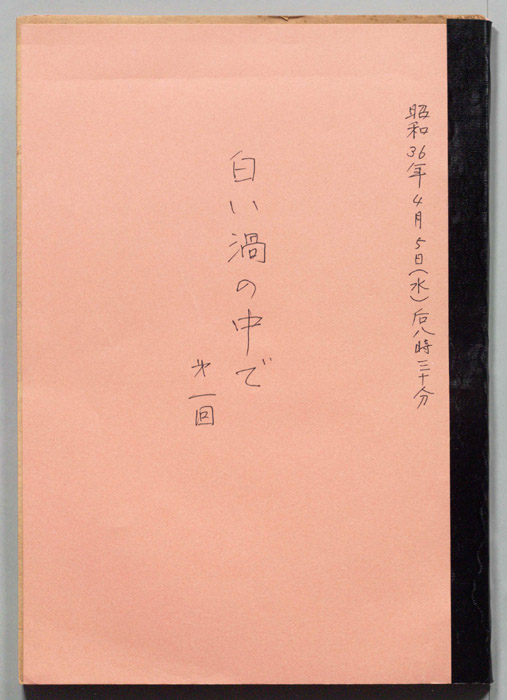 昭和36年4月5日(水)后八時三十分
白い渦の中で
才一回